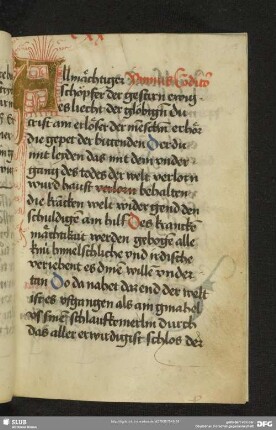 Allmåchtiger
schöpfer der gestarn ewig-
es liecht der glöbign du
crist am erlöser der menschen erhör
die gepet der bittenden Der du
mit leiden das mit dem vnder
gang des todes der welt verlorn
wurd haust verlorn behalten
die krâcken welt wider gend den
schuldigen ain hilf Des krancke
mâchtikait werden geboge alle
knü himelschliche vnd irdische
veriehent es dine wille vnder
tan Do da nahet daz end der welt
ist es vsgangen als am gmahol
vs sine schlauftkemerlin durch
das aller erwirdigist schlos der
SLUB
DFG